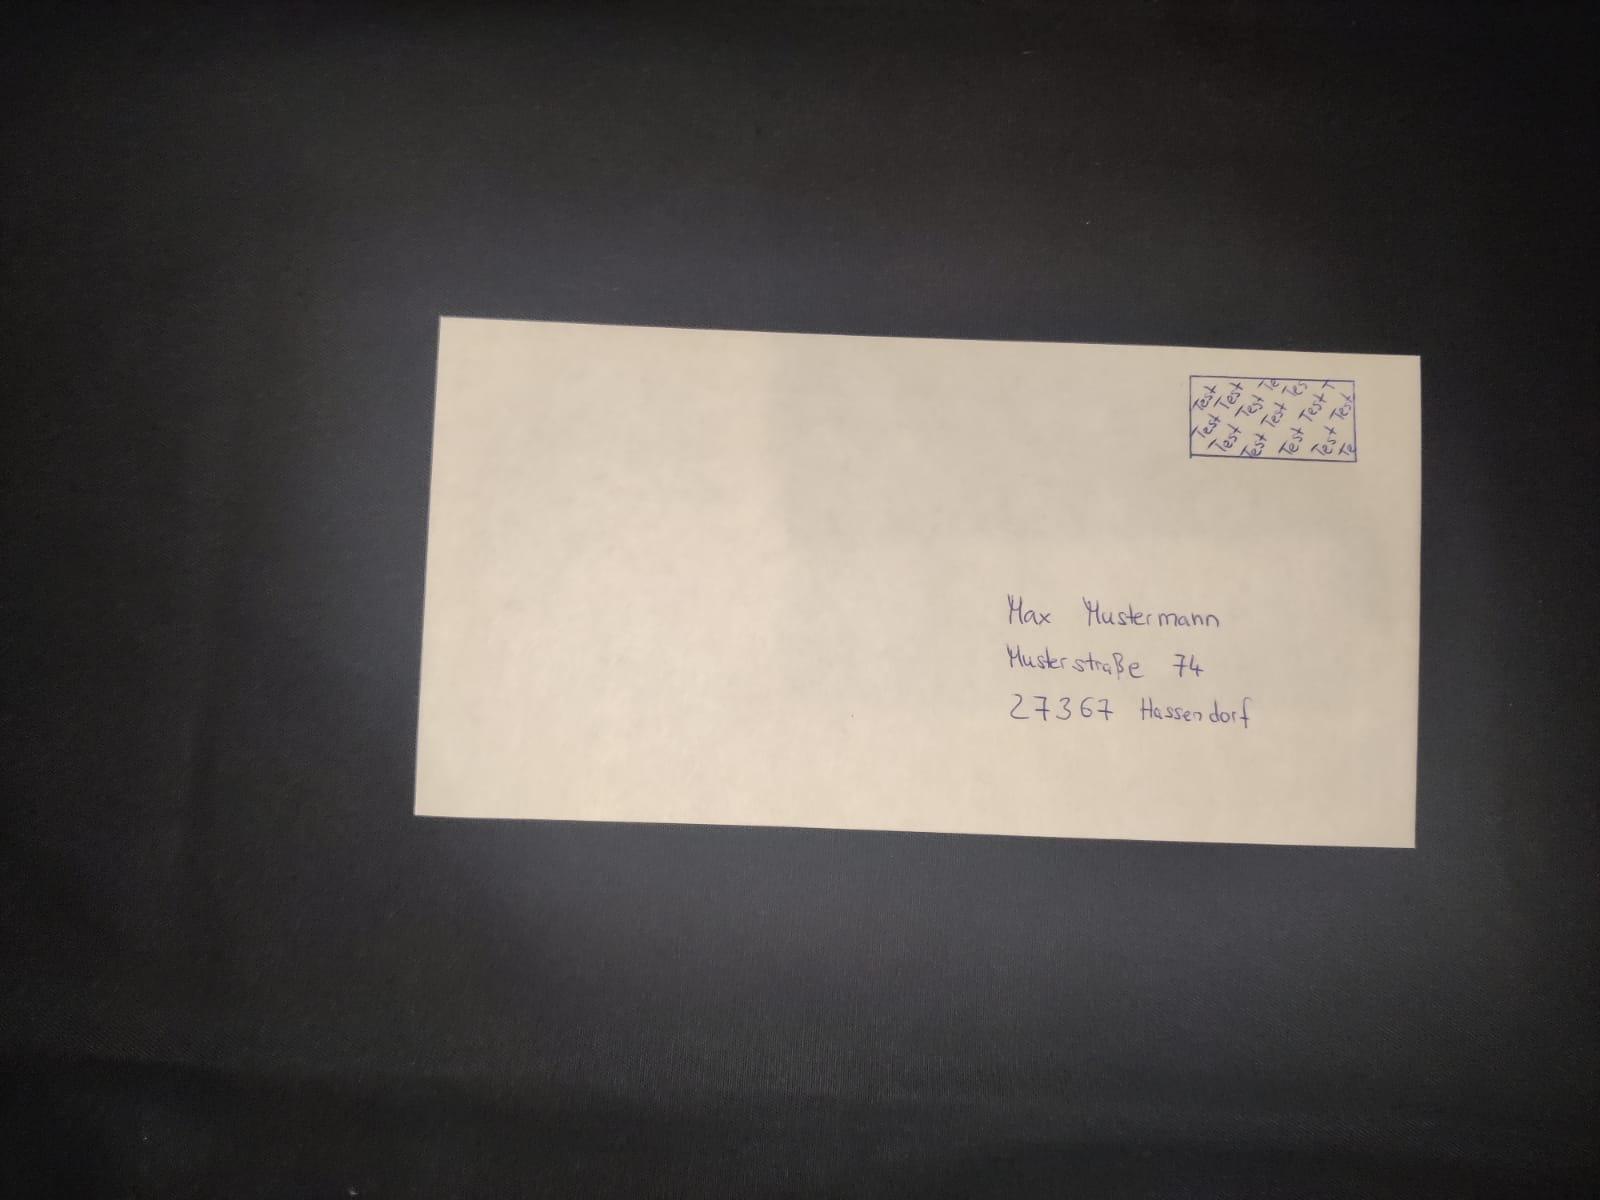 Test Test Te Tes T
Test Test Test Test Test
Test Test Test Test Te
Max Mustermann
Musterstraße 74
27367 Hassendorf